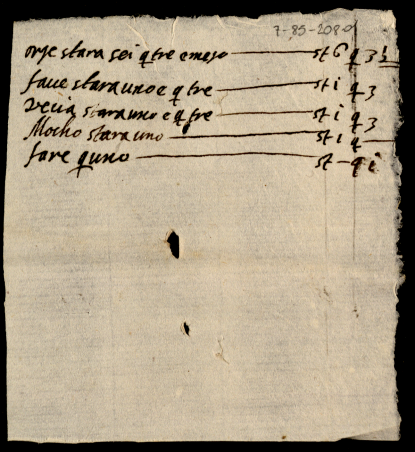 7-85-2080
orze stara sei q tre e meso st 6 q 3 ½
faue stara uno e q tre st i q 3
vecia stara uno e q tre st i q 3
Mocho stara uno st i q
fare q uno st - q i